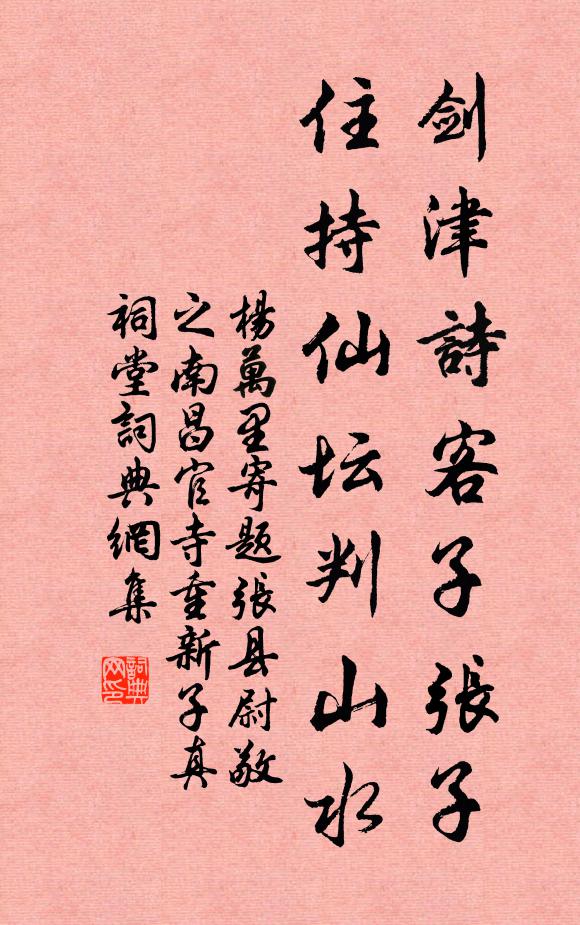 剑津詩客子張子
住持仙坛判山水
楊萬里寄题張县尉敬
之南昌官寺重新子真
祠堂詞典網集
詞典
网印